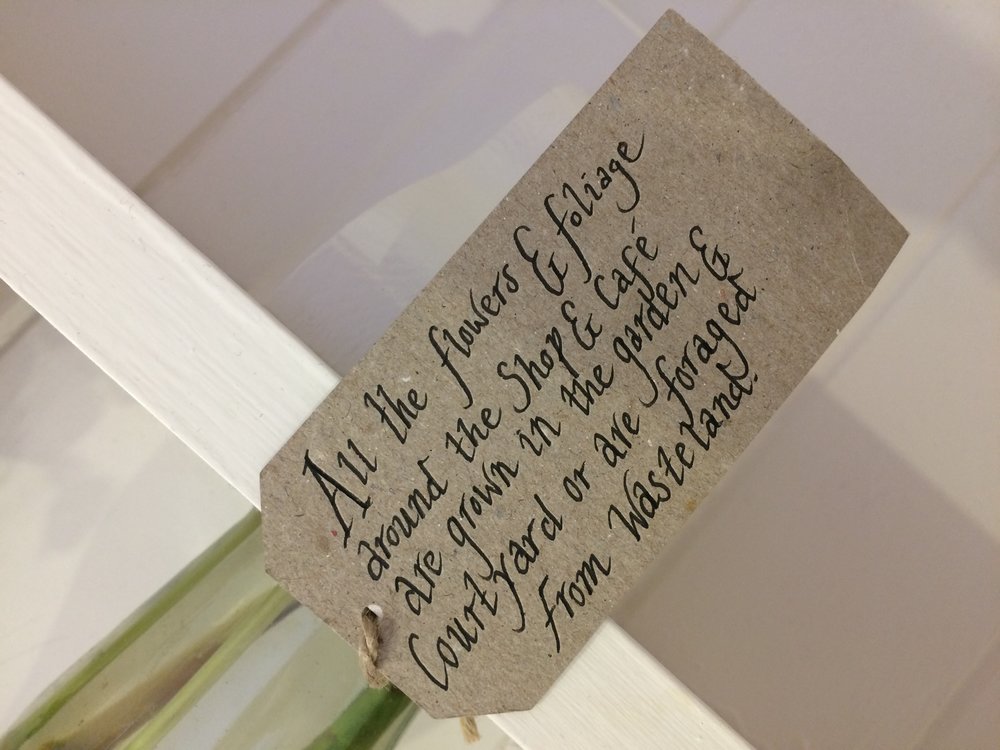 All the flowers & foliage
around the Shop & Café
are grown in the garden &
Courtyard or are foraged
from Wasteland.